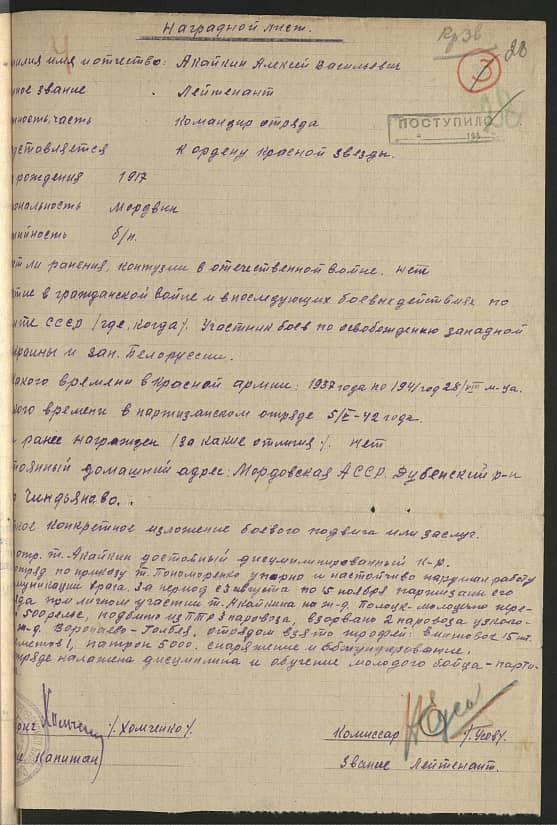 Наградной лист.
РзЗв
28
3
милия имя и отчество: Акайкин Алексей Васильевич
нное звание Лейтенант
ПОСТУПИЛО
жность, часть Командир отряда
дставляется К ордену Красной Звезды.
рождения 1917
иональность Мордвин
тийность б/п.
ет ли ранения, контузии в отечественной войне. нет
стие в гражданской войне и в последующих боевых действиях по
щите СССР (где, когда). Участник боев по освобождению западной
краины и зап. Белоруссии.
какого времени в Красной армии: 1937 года по 1941 год 28/VIII м-ца.
кого времени в партизанском отряде 5/V-42 года.
ранее награжден (за какие отличия). нет
тоянный домашний адрес: Мордовская АССР Дубенский р-н
Чиндьяново.
ное конкретное изложение боевого подвига или заслуг.
отр. т. Акайкин достойный дисциплинированный к-р.
тряд по приказу т. Пономоренко упорно и настойчиво нарушал работу
муникации врага. За период с 23 августа по 15 ноября партизаны его
яда при личном участии т. Акайкина на ж-д. Полоцк-Молодечно
500 рельс, подбито из ПТР 3 паровоза, взорвано 2 паровоза узкого-
ж-д. Воропаево- отрядом взято трофей: винтовок 15 шт.
леметов 1, патрон 5000. снаряжение и обмундирование.
тряде налажена дисциплина и обучение молодого бойца-парти-
/Хомченко/.
Капитан/
Комиссар /Усов/.
Звание Лейтенант.